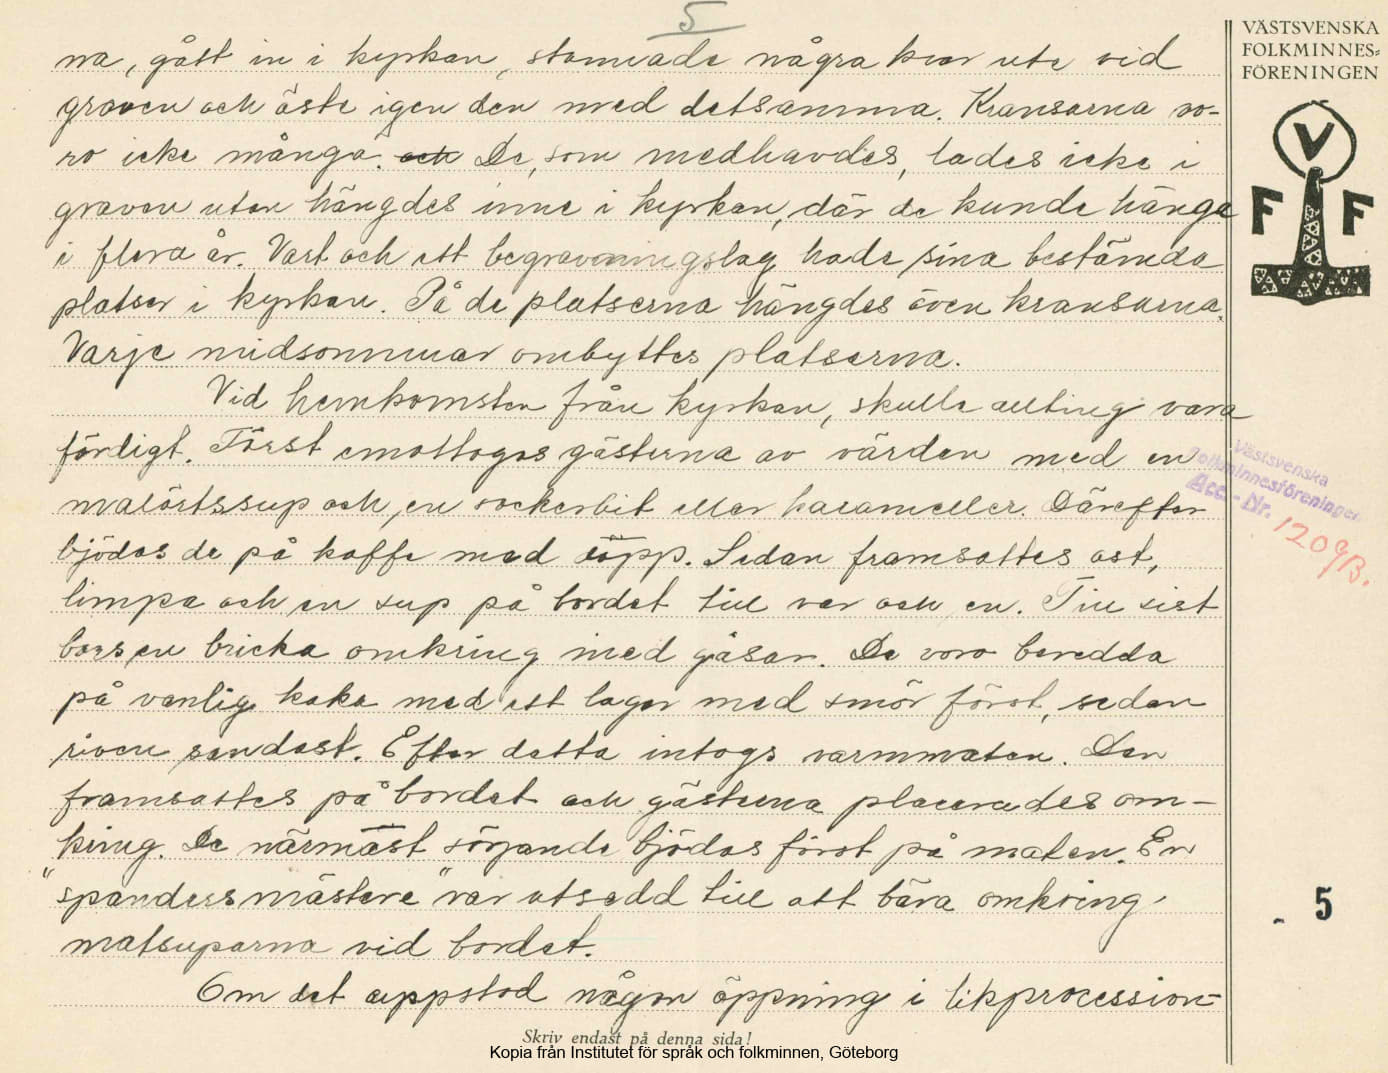 5
na, gått in i kyrkan, stannade några kvar ute vid
graven och öste igen den med detsamma. Kransarna vo-
ro icke många. och De, som medhavdes, lades icke i
graven utan hängdes inne i kyrkan, där de kunde hänga
i flera år. Vart och ett begravningslag hade sina bestämda
platser i kyrkan. På de platserna hängdes även kransarna.
Varje midsommar ombyttes platserna.
Vid hemkomsten från kyrkan, skulle allting vara
färdigt. Först emottogos gästerna av värden med en
malörtssup och en sockerbit eller karameller. Därefter
bjödos de på kaffe med dopp. Sedan framsattes ost,
limpa och en sup på bordet till var och en. Till sist
bars en bricka omkring med gåsar. De voro beredda
på vanlig kaka med ett lager med smör först, sedan
riven sandost. Efter detta intogs varmmaten. Den
framsattes på bordet och gästerna placerades om-
kring. De närmast sörjande bjödos först på maten. En
"spandersmästare" var utsedd till att bära omkring
matsuparna vid bordet.
Om det uppstod någon öppning i likprocession-
Skriv endast på denna sida!
Kopia från Institutet för språk och folkminnen, Göteborg
VÄSTSVENSKA
FOLKMINNES-
FÖRENINGEN
V
F F
Västsvenska
Folkminnesföreningen
Acc.-Nr. 1209B.
- 5